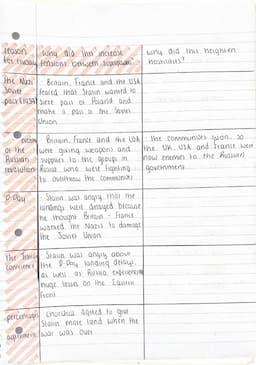 reason
for rivalry
why did this increase
tensions between superpowers?
why did this heighten
hostilities?
The Nazi
Soviet
pact (1939)
Britain, France and the USA
feared that Stalin wanted to
seize part of Poland and
make it part of the Soviet
Union.
of the
Russian
revolution
Britain, France and the USA
were giving weapons and
supplies to the groups in
Russia who were fighting
to overthrow the communists
The communists won, so
the UK, USA and France were
now enemies to the Russian
government.
D-Day
Stalin was angry that the
landings were delayed because
he thought Britain + France
wanted the Nazis to damage
the Soviet Union.
The Tehran
conference
Stalin was angry about
the D-Day landing delays,
as well as Russia experiencing
huge losses on the Eastern
Front.
percentages
agreement
Churchill agreed to give
Stalin more land when the
war was over.